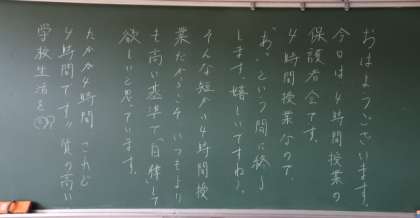 おはようございます。
今日は、4時間授業の
保護者会です。
4時間授業なので、
あっという間に終了
します。嬉しいですね。
そんな短かい4時間授
業だからこそ、いつもより
も高い基準で「自律」して
欲しいと思っています。
たかが4時間 されど
4時間です!!質の高い
学校生活を